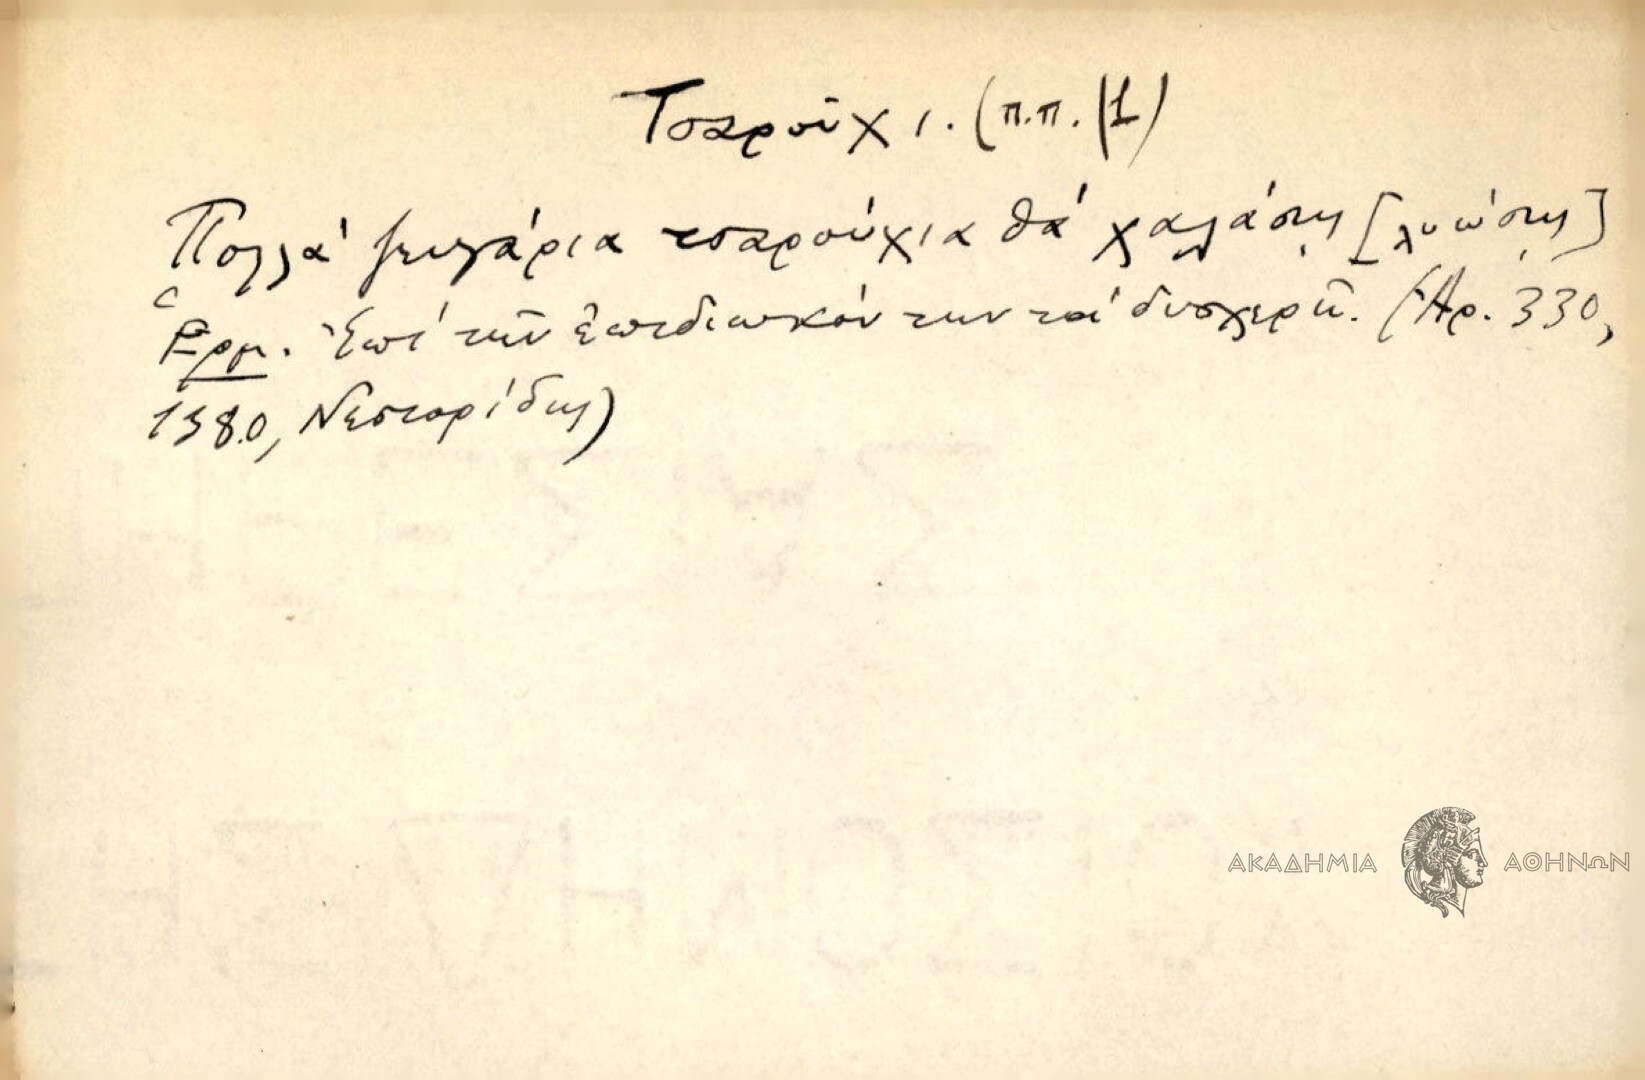 Τσαροῦχι. (π.π. |1)
Πολλά ζευγάρια τσαρούχια θά χαλάσῃς [λυώσῃς]
Ἑρμ. Ἐπί τῶν ἐπιδιωκόντων τά δυσχερῆ. (Ἀρ. 330,
1380, Νεστορίδης)
ΑΚΑΔΗΜΙΑ ΑΘΗΝΩΝ